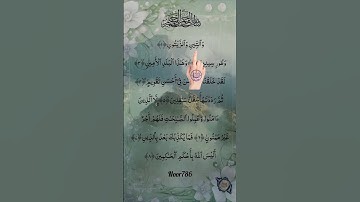 بسم الله الرحمن الرحيم
وَالتِّينِ وَالزَّيْتُونِ ﴿١﴾
وَطُورِ سِينِينَ ﴿٢﴾ وَهَٰذَا الْبَلَدِ الْأَمِينِ ﴿٣﴾
لَقَدْ خَلَقْنَا فِي أَحْسَنِ تَقْوِيمٍ ﴿٤﴾
ثُمَّ رَدَدْنَاهُ أَسْفَلَ سَافِلِينَ ﴿٥﴾ إِلَّا الَّذِينَ
آمَنُوا وَعَمِلُوا الصَّالِحَاتِ فَلَهُمْ أَجْرٌ
غَيْرُ مَمْنُونٍ ﴿٦﴾ فَمَا يُكَذِّبُكَ بَعْدُ بِالدِّينِ ﴿٧﴾
أَلَيْسَ اللَّهُ بِأَحْكَمِ الْحَاكِمِينَ ﴿٨﴾
Noor786